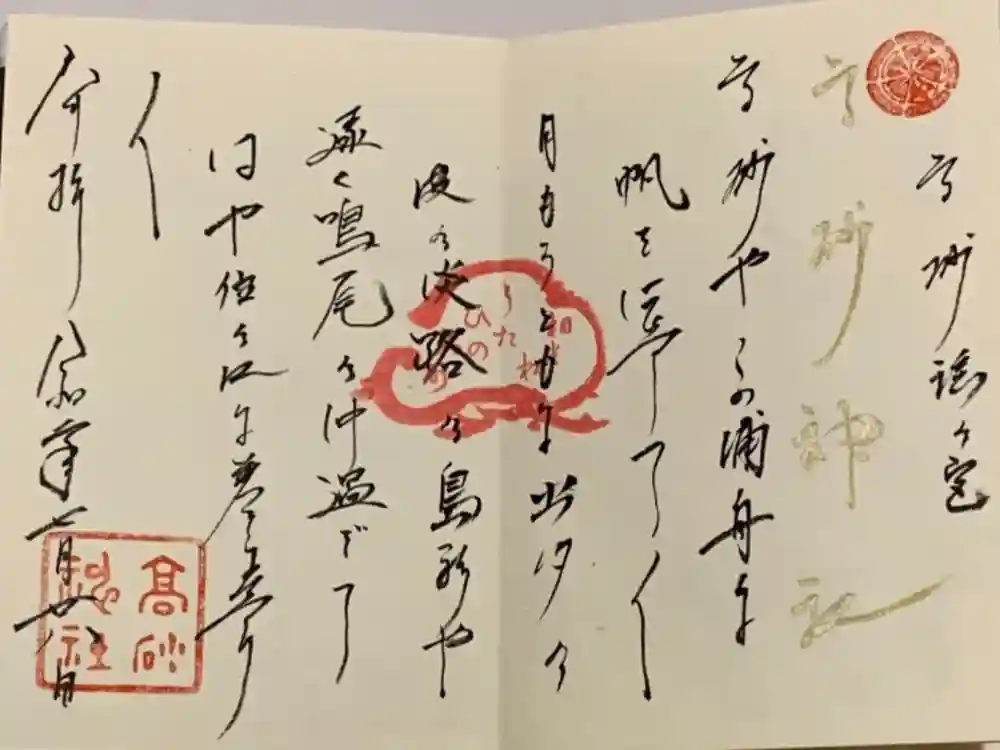 高砂謡の宮
高砂神社
高砂やこの浦舟に
帆を揚げて〱
月もろともに出汐の
波の淡路の島影や
遠く鳴尾の沖過ぎて
はや住の江に着
〱
奉拝 令和 年七月廿八日
高砂
社